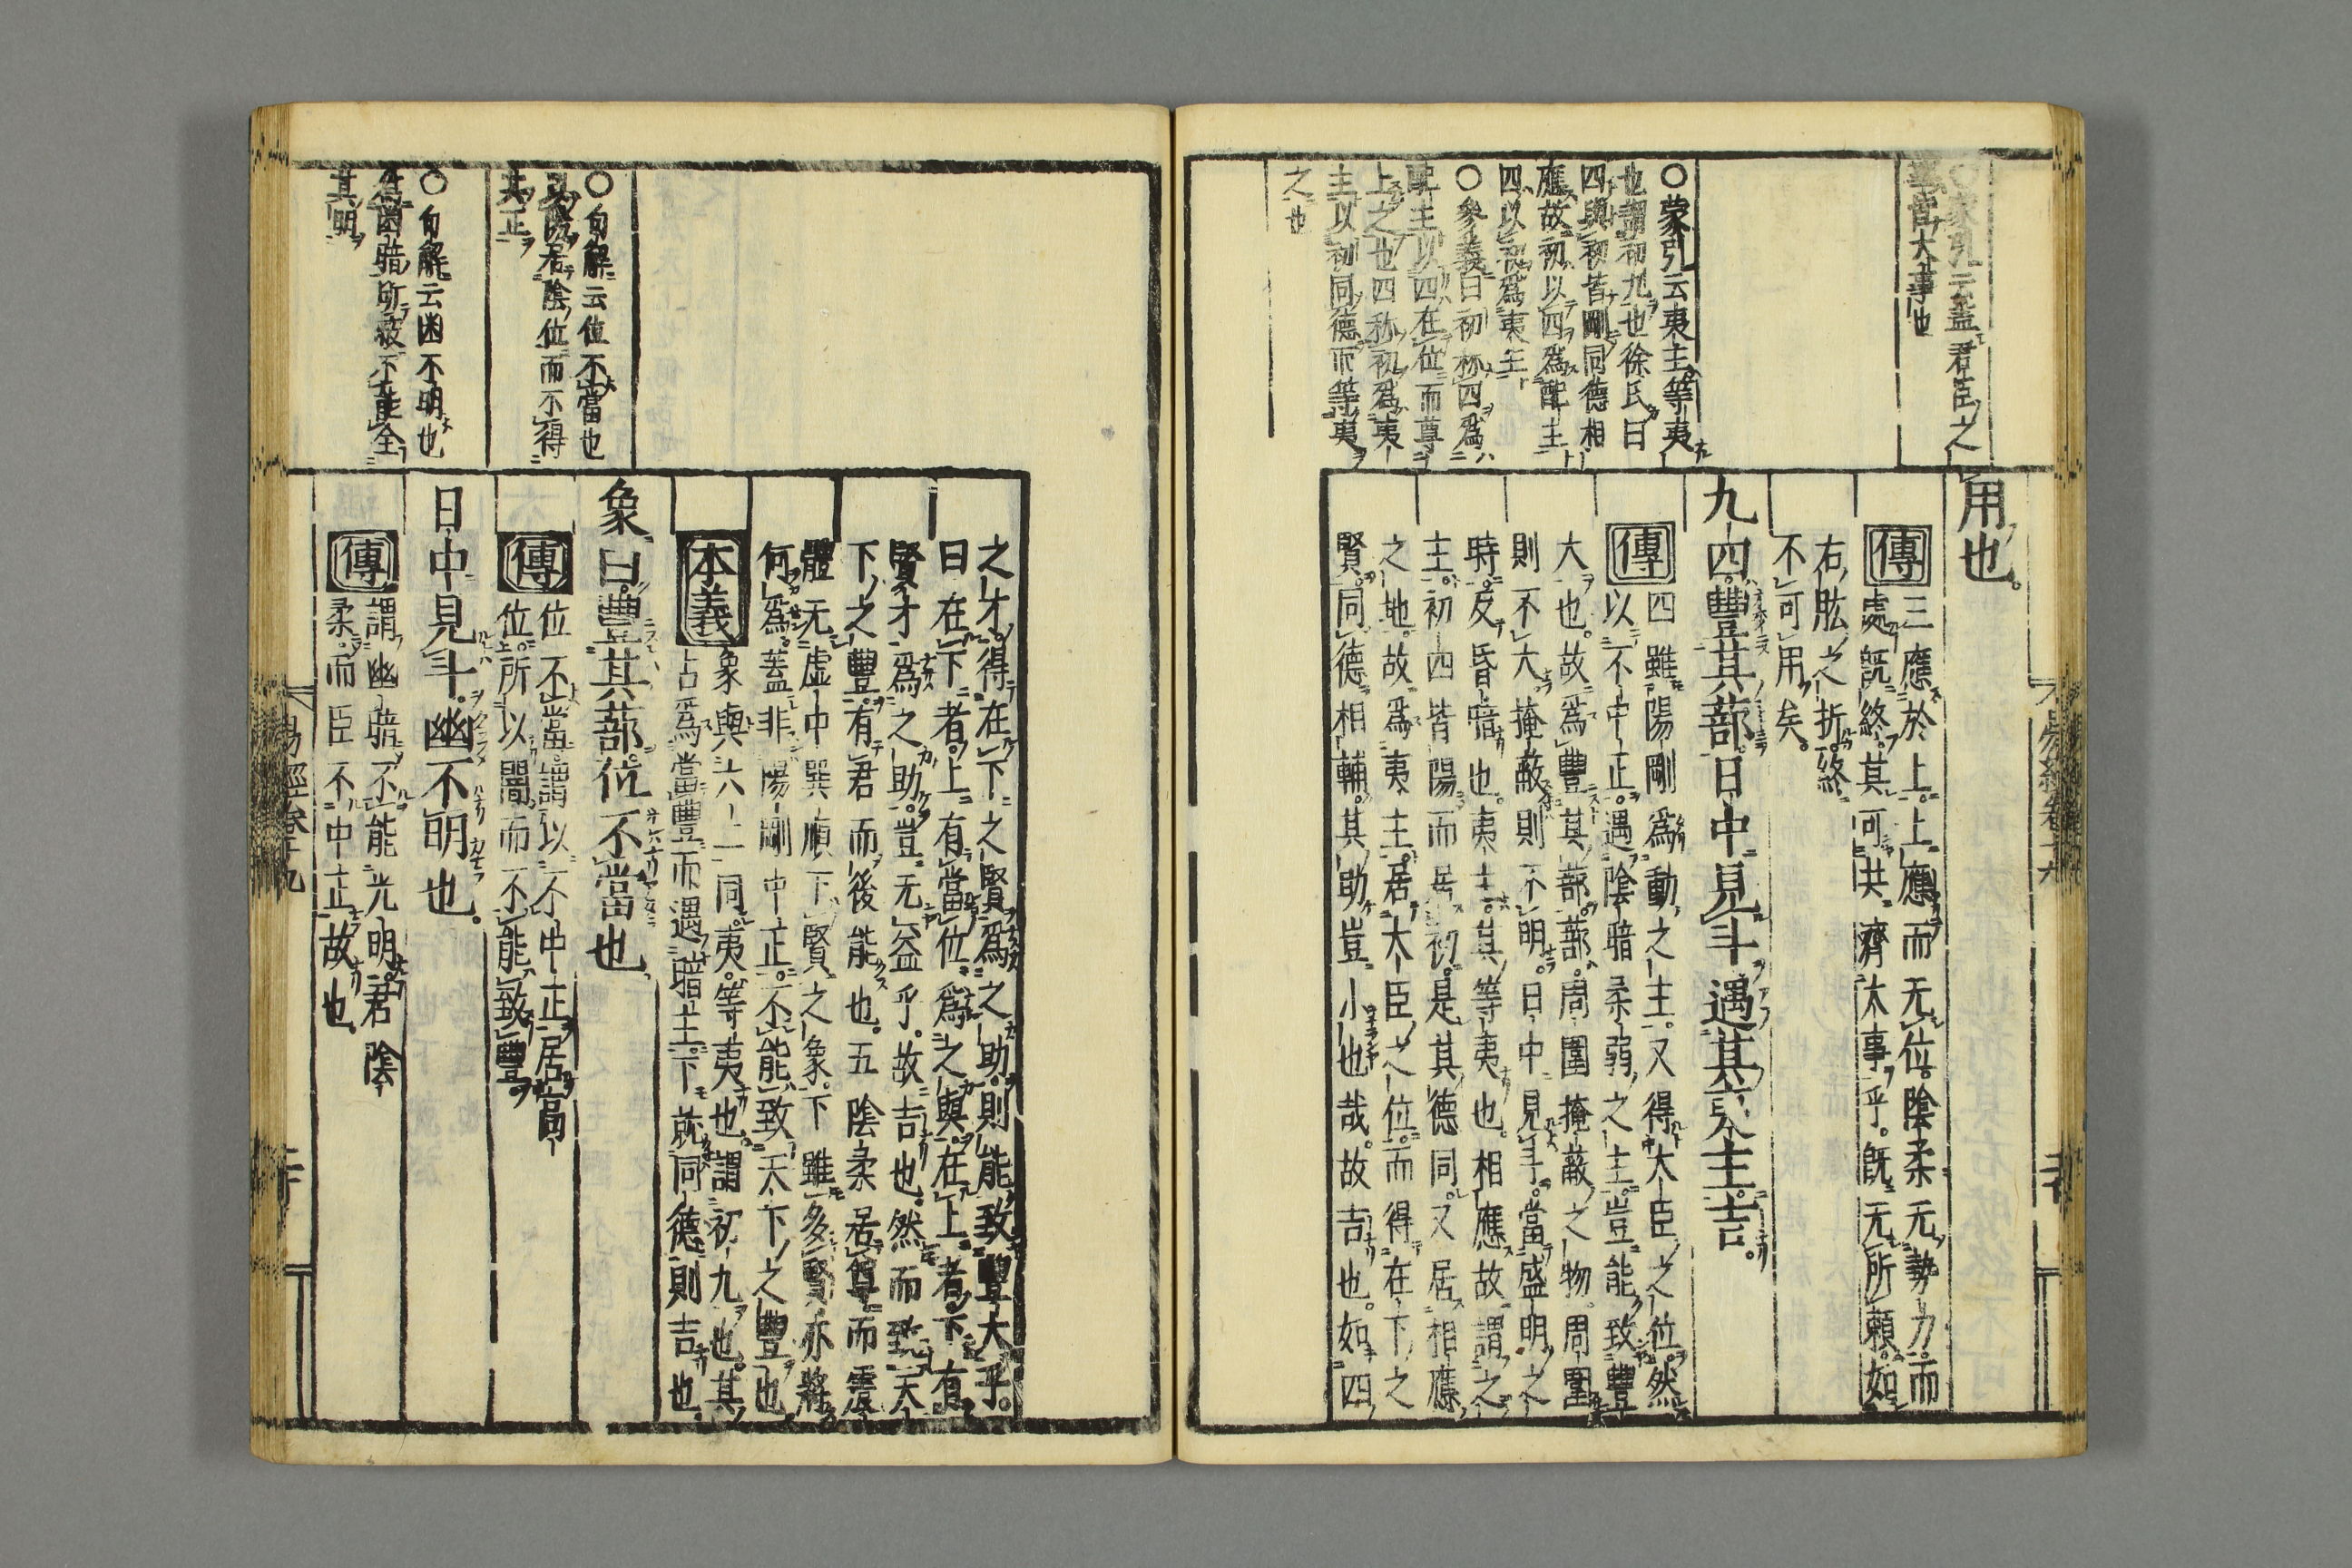 用也。
傳
三應於上。上應而无位。陰柔无勢力。而
處既終。其可共濟大事乎。既无所頼。如
右肱之折。終
不可用矣。
九四。豐其蔀。日中見斗。遇其夷主。吉。
傳
四雖陽剛爲動之主。又得大臣之位。然
以不中正。遇陰暗柔弱之主。豈能致豐
大也。故爲豐其蔀。蔀。周圍掩蔽之物。周圍
則不大。掩蔽則不明。日中見斗。當盛明之
時。反昏暗也。夷主。其等夷也。相應故謂之
主。初四皆陽而居初。是其德同。又居相應
之地。故爲夷主。居大臣之位。而得在下之
賢。同德相輔。其助豈小也哉。故吉也。如四
○蒙引云蓋君臣之
事皆大事也
○蒙引云夷主等夷
也謂初九也徐氏曰
四與初皆剛同德相
應故初以四爲配主
四以初爲夷主
○參義曰初称四爲
配主以四在位而尊
上之也四称初爲夷
主以初同德而等夷
之也
之才。得在下之賢爲之助。則能致豐大乎。
曰在下者。上有當位爲之與。在上者。下有
賢才爲之助。豈无益乎。故吉也。然而致天
下之豐。有君而後能也。五陰柔居尊而震
體。无虛中巽順下賢之象。下雖多賢。亦將
何爲。蓋非陽剛中正。不能致天下之豐也
本義
象與六二同。夷。等夷也。謂初九也。其
占爲當豐而遇暗主。下就同德則吉也
象曰。豐其蔀。位不當也
傳
位不當。謂以不中正居高
位。所以闇而不能致豐。
日中見斗。幽不明也。
傳
謂幽暗不能光明。君陰
柔。而臣不中正故也。
○句解云位不當也
以陽居陰位而不得
其正
○句解云幽不明也
爲幽暗所蔽不能全
其明
易經卷十九